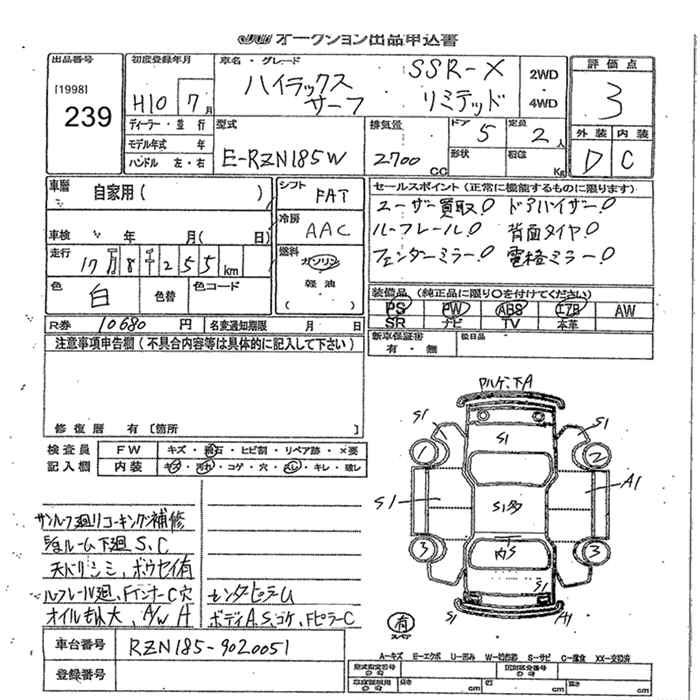 JU オークション出品申込書
出品番号 初度登録年月 車名・グレード 評価点
[1998] 239
H10 7月
ハイラックス サーフ SSR-X リミテッド
2WD
・
4WD
3
ディーラー・並行
モデル年式 年
ハンドル 左・右
型式 E-RZN185W
排気量 2700 CC
ドア 5 定員 2人
形状 積値 Kg
外装 内装
D C
車歴 自家用( )
シフト FAT
セールスポイント(正常に機能するものに限ります)
ユーザー買取! ドアバイザー!
ルーフレール! 背面タイヤ!
フェンダーミラー! 電格ミラー!
車検 年 月( 日)
冷房 AAC
走行 17万8千255km
燃料 ガソリン
軽油
( )
色 白 色替 色コード
装備品(純正品に限り○を付けてください)
PS PW ABS エアB AW
SR ナビ TV 本革
R券 10680円 名変通知期限 月 日
新車保証書 有・無 後日品
注意事項申告欄(不具合内容等は具体的に記入して下さい)
修復歴 有[箇所
検査員
記入欄
FW キズ・飛石・ヒビ割・リペア跡・×要
内装 キズ・汚れ・コゲ・穴・スレ・キレ・破レ
下A
S1 S1 S1
1 2
S1 S1多 A1
3 内S 3
S1 S1 A1
有
スペア
サンルーフ廻りコーキング補修
ルーム下廻S,C
天バリシミ、ボウセイ有
ルーフレール廻、FインナーC穴 センタピラーム
オイルもれ大、A/W H ボディA,S,コケ、FピラーC
車台番号 RZN185-9020051
登録番号
A-キズ E-エクボ U-凹み W-補修跡 S-サビ C-腐食 XX-交換済
型式指定番号 類別区分番号
長さ cm 幅 cm 高さ cm